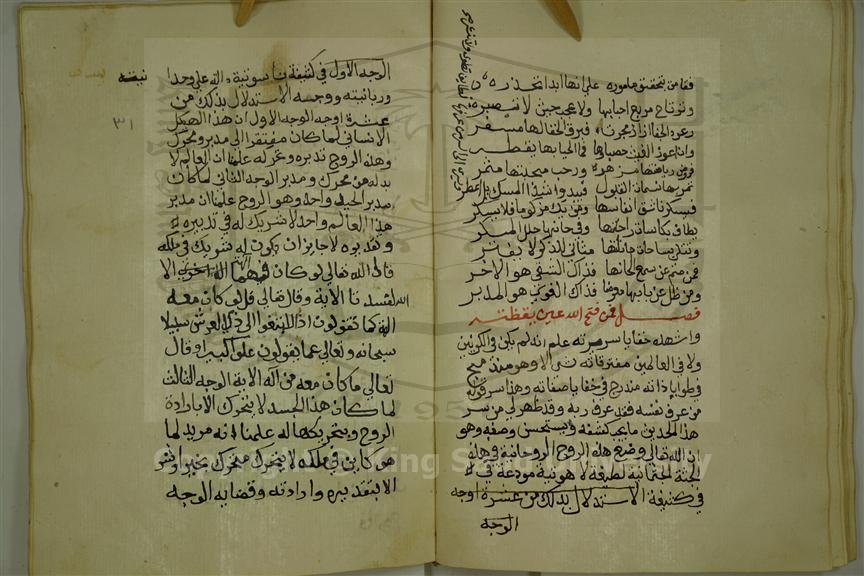 فقام من يتحقق مأموره علم انها ابدا تحذره
وترتاع مربع احبابها ولا عجب حين لا تصبره
رعود الجفا ازار مجرنا فبرق الجفا لها مسفر
وان اعوز الغيث حصباها في الحيا بها يقطر
ومن رياضتها مزهرة ورحب مجلتها مثمر
ثمر بها نسمات القبول فيبدو شذا المسك والعطر
فيسكر ناشق انفاسها ومن يك مزكوما فلا يسكر
يطاف بكاسات راحتها وفي حانها حلل المسكر
وتتلى بساحات حاناتها مثاني للذكر لا يفتر
فمن صم عن سمع الحانها فذاك الشقي هو الاخر
ومن ظل عن بابها معرضا فذاك الغوي هو المدبر
فصل فمن فتح الله عين يقظته
واشهده خفايا سر سريرته علم انه لم يكن في الكونين
ولا في العالمين مفترقاته شيء الا وهو منذ مج
في طوايا ذاته مندرج في خفايا صفاته وهذا سر قوله
من عرف نفسه فقد عرف ربه وقد ظهر لي من سر
هذا الحديث ما يجب كشفه ويستحسن وصفه وهو
ان الله تعالى وضع هذه الروح الروحانية في هذه
الجثة الجثمانية لطيفة لاهوتية مودعة في
في كثيفة الاستدلال بذلك من عشرة اوجه
الوجه
الوجه الاول في كثيفة ناسوتية دالة على وحدا نيته
وربانيته ووجه الاستدلال بذلك من
عشرة اوجه الوجه الاول ان هذا الهيكل
٣١
الانساني لما كان مفتقرا الى مدبر ومحرك
وهذه الروح تدبره وتحركه علمنا ان العالم لا
بد له من محرك ومدبر الوجه الثاني لما كان
مدبر الجسد واحد وهو الروح علمنا ان مدبر
هذا العالم واحد لا شريك له في تدبيره
وتقديره لا جايز ان يكون له شريك في ملكه
قال الله تعالى لو كان فيهما الهة الا
الله لفسدتا الاية وقال تعالى قل لو كان معه
الهة كما تقولون اذا لابتغوا الى ذي العرش سبيلا
سبحانه وتعالى عما يقولون علوا كبيرا وقال
تعالى ما كان معه من اله الاية الوجه الثالث
لما كان هذا الجسد لا يتحرك الا بارادة
الروح وبتحريكها له علمنا انه مريد لما
هو كاين في ملكه لا يتحرك متحرك بخير او شر
الا بتقديره وارادته وقضايه الوجه
Copyright © King Saud University